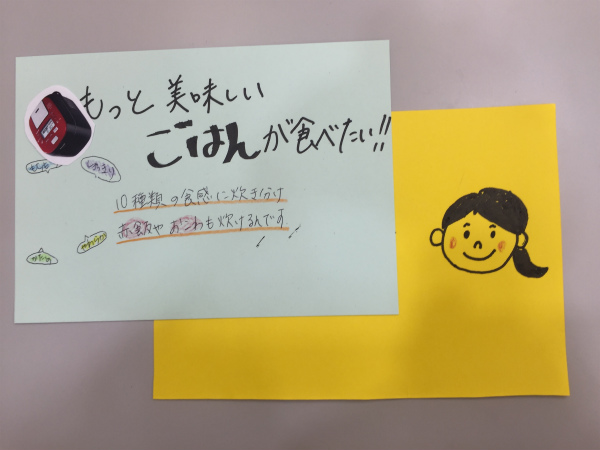 もっと美味しい
ごはんが食べたい!!
10種類の食感に炊き分け
赤飯やおこわも炊けるんです!!